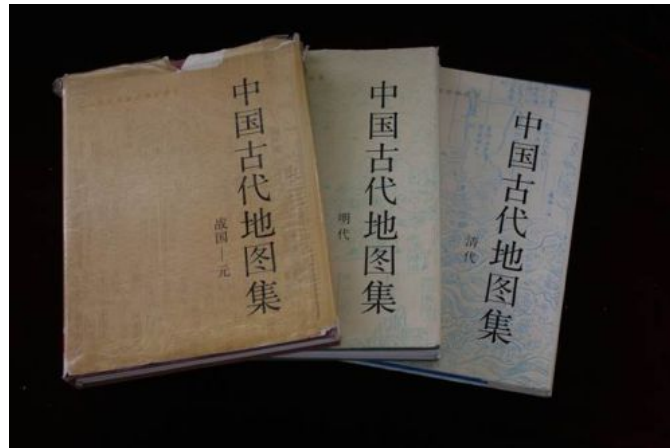 中国古代地图集
战国—元
中国古代地图集
明代
中国古代地图集
清代